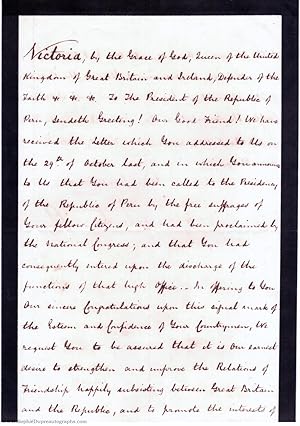 Victoria, by the Grace of God, Queen of the United
Kingdom of Great Britain and Ireland, Defender of the
Faith &c. &c. &c. To The President of the Republic of
Peru, Sendeth Greeting! Our Good Friend! We have
received the Letter which You addressed to Us on
the 29th of October last, and in which You announce
to Us that You had been called to the Presidency
of the Republic of Peru by the free suffrages of
Your fellow Citizens, and had been proclaimed
by the National Congress; and that You had
consequently entered upon the discharge of the
functions of that high Office. - In offering to You
Our sincere Congratulations upon this signal mark of
the Esteem and Confidence of Your Countrymen, We
request You to be assured that it is Our earnest
desire to strengthen and improve the Relations of
Friendship happily subsisting between Great Britain
and the Republic, and to promote the interests of